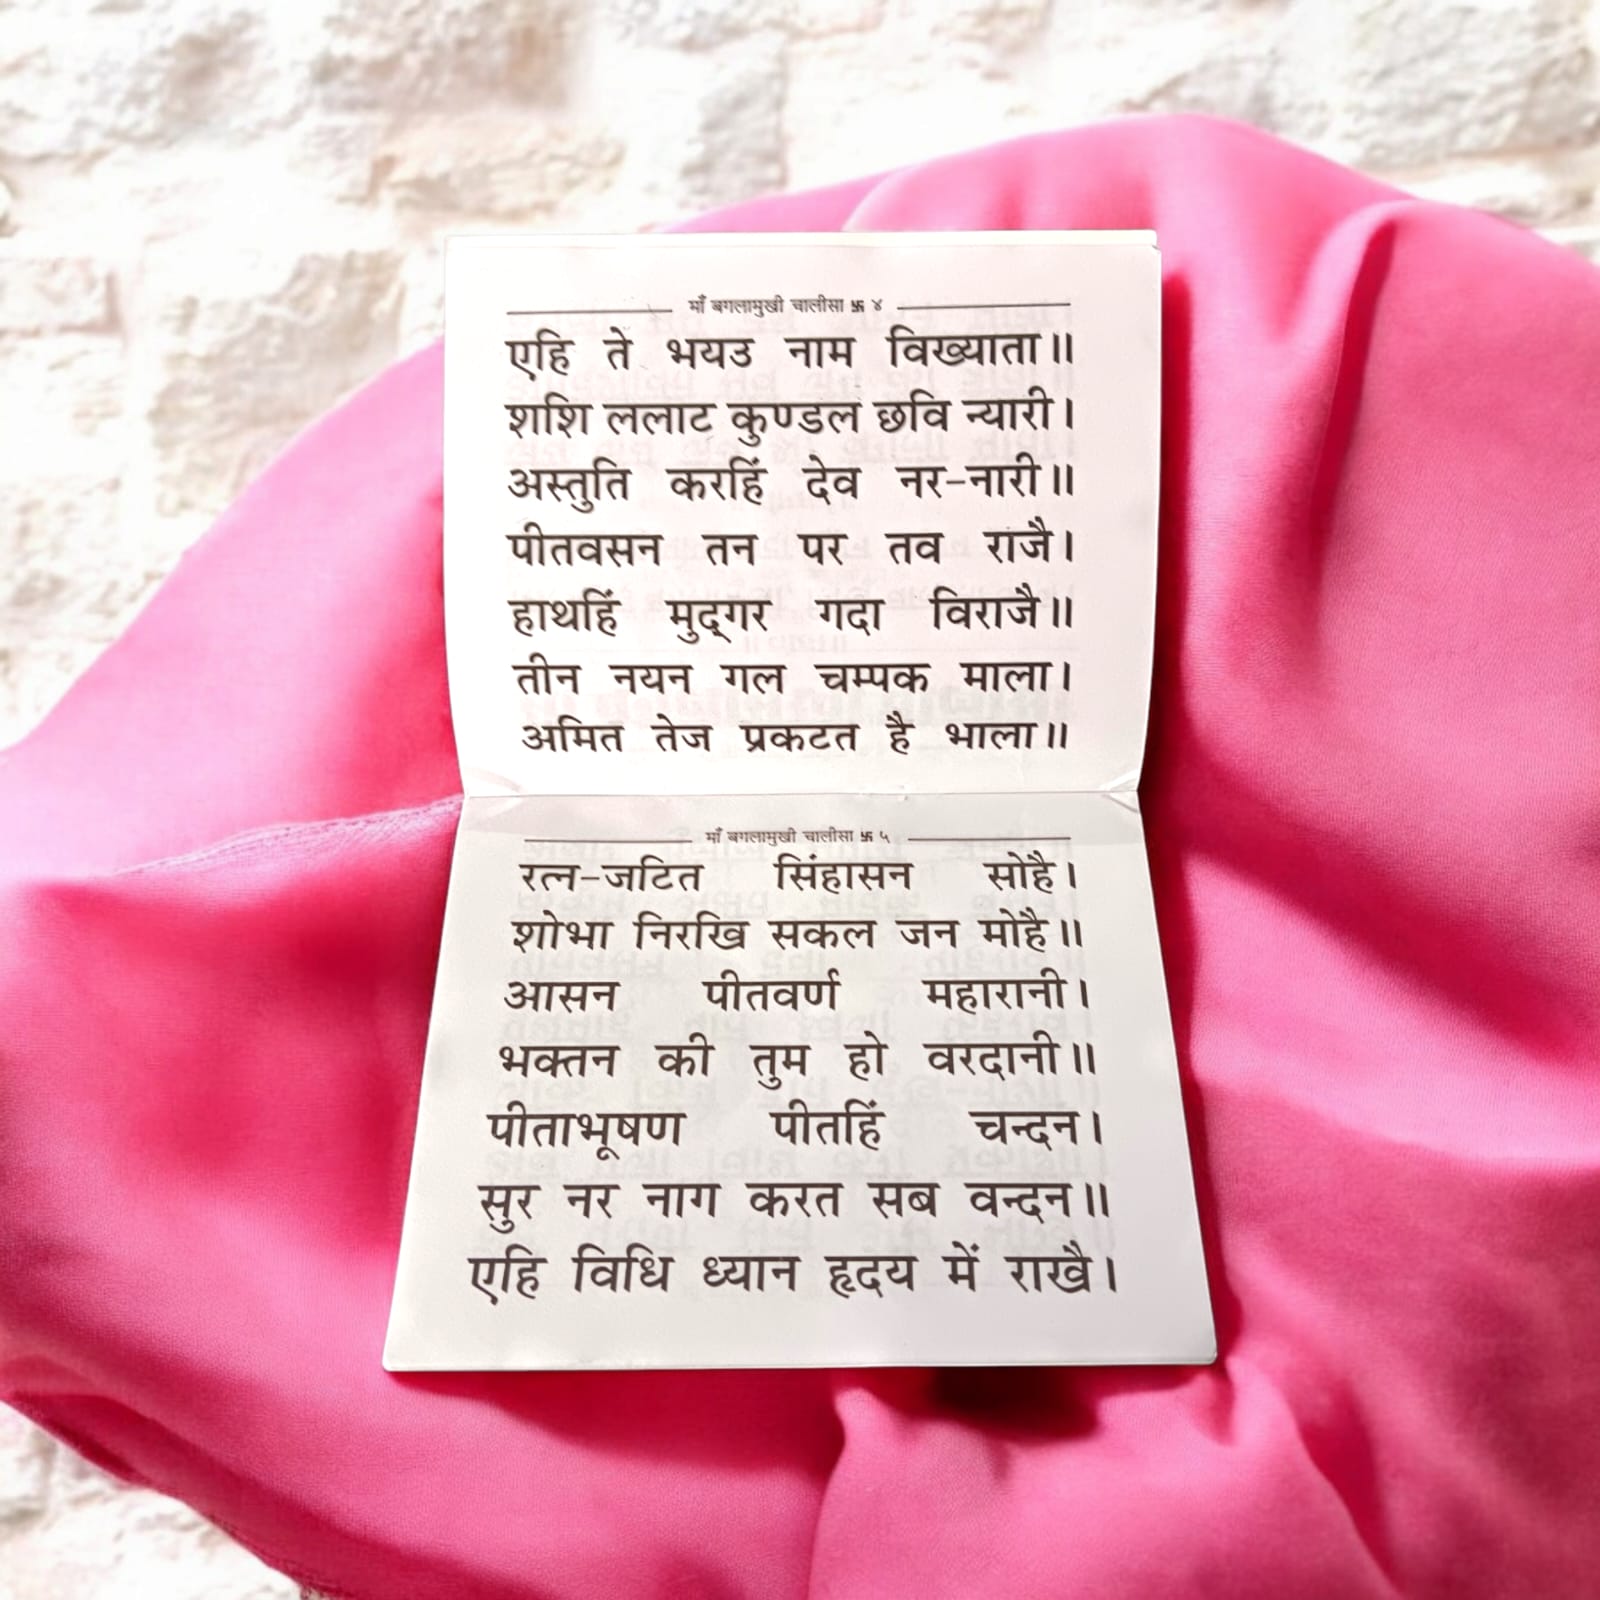 माँ बगलामुखी चालीसा 卐 ४
एहि ते भयउ नाम विख्याता॥
शशि ललाट कुण्डल छवि न्यारी।
अस्तुति करहिं देव नर-नारी॥
पीतवसन तन पर तव राजै।
हाथहिं मुद्गर गदा विराजै॥
तीन नयन गल चम्पक माला।
अमित तेज प्रकटत है भाला॥
माँ बगलामुखी चालीसा 卐 ५
रत्न-जटित सिंहासन सोहै।
शोभा निरखि सकल जन मोहै॥
आसन पीतवर्ण महारानी।
भक्तन की तुम हो वरदानी॥
पीताभूषण पीतहिं चन्दन।
सुर नर नाग करत सब वन्दन॥
एहि विधि ध्यान हृदय में राखै।